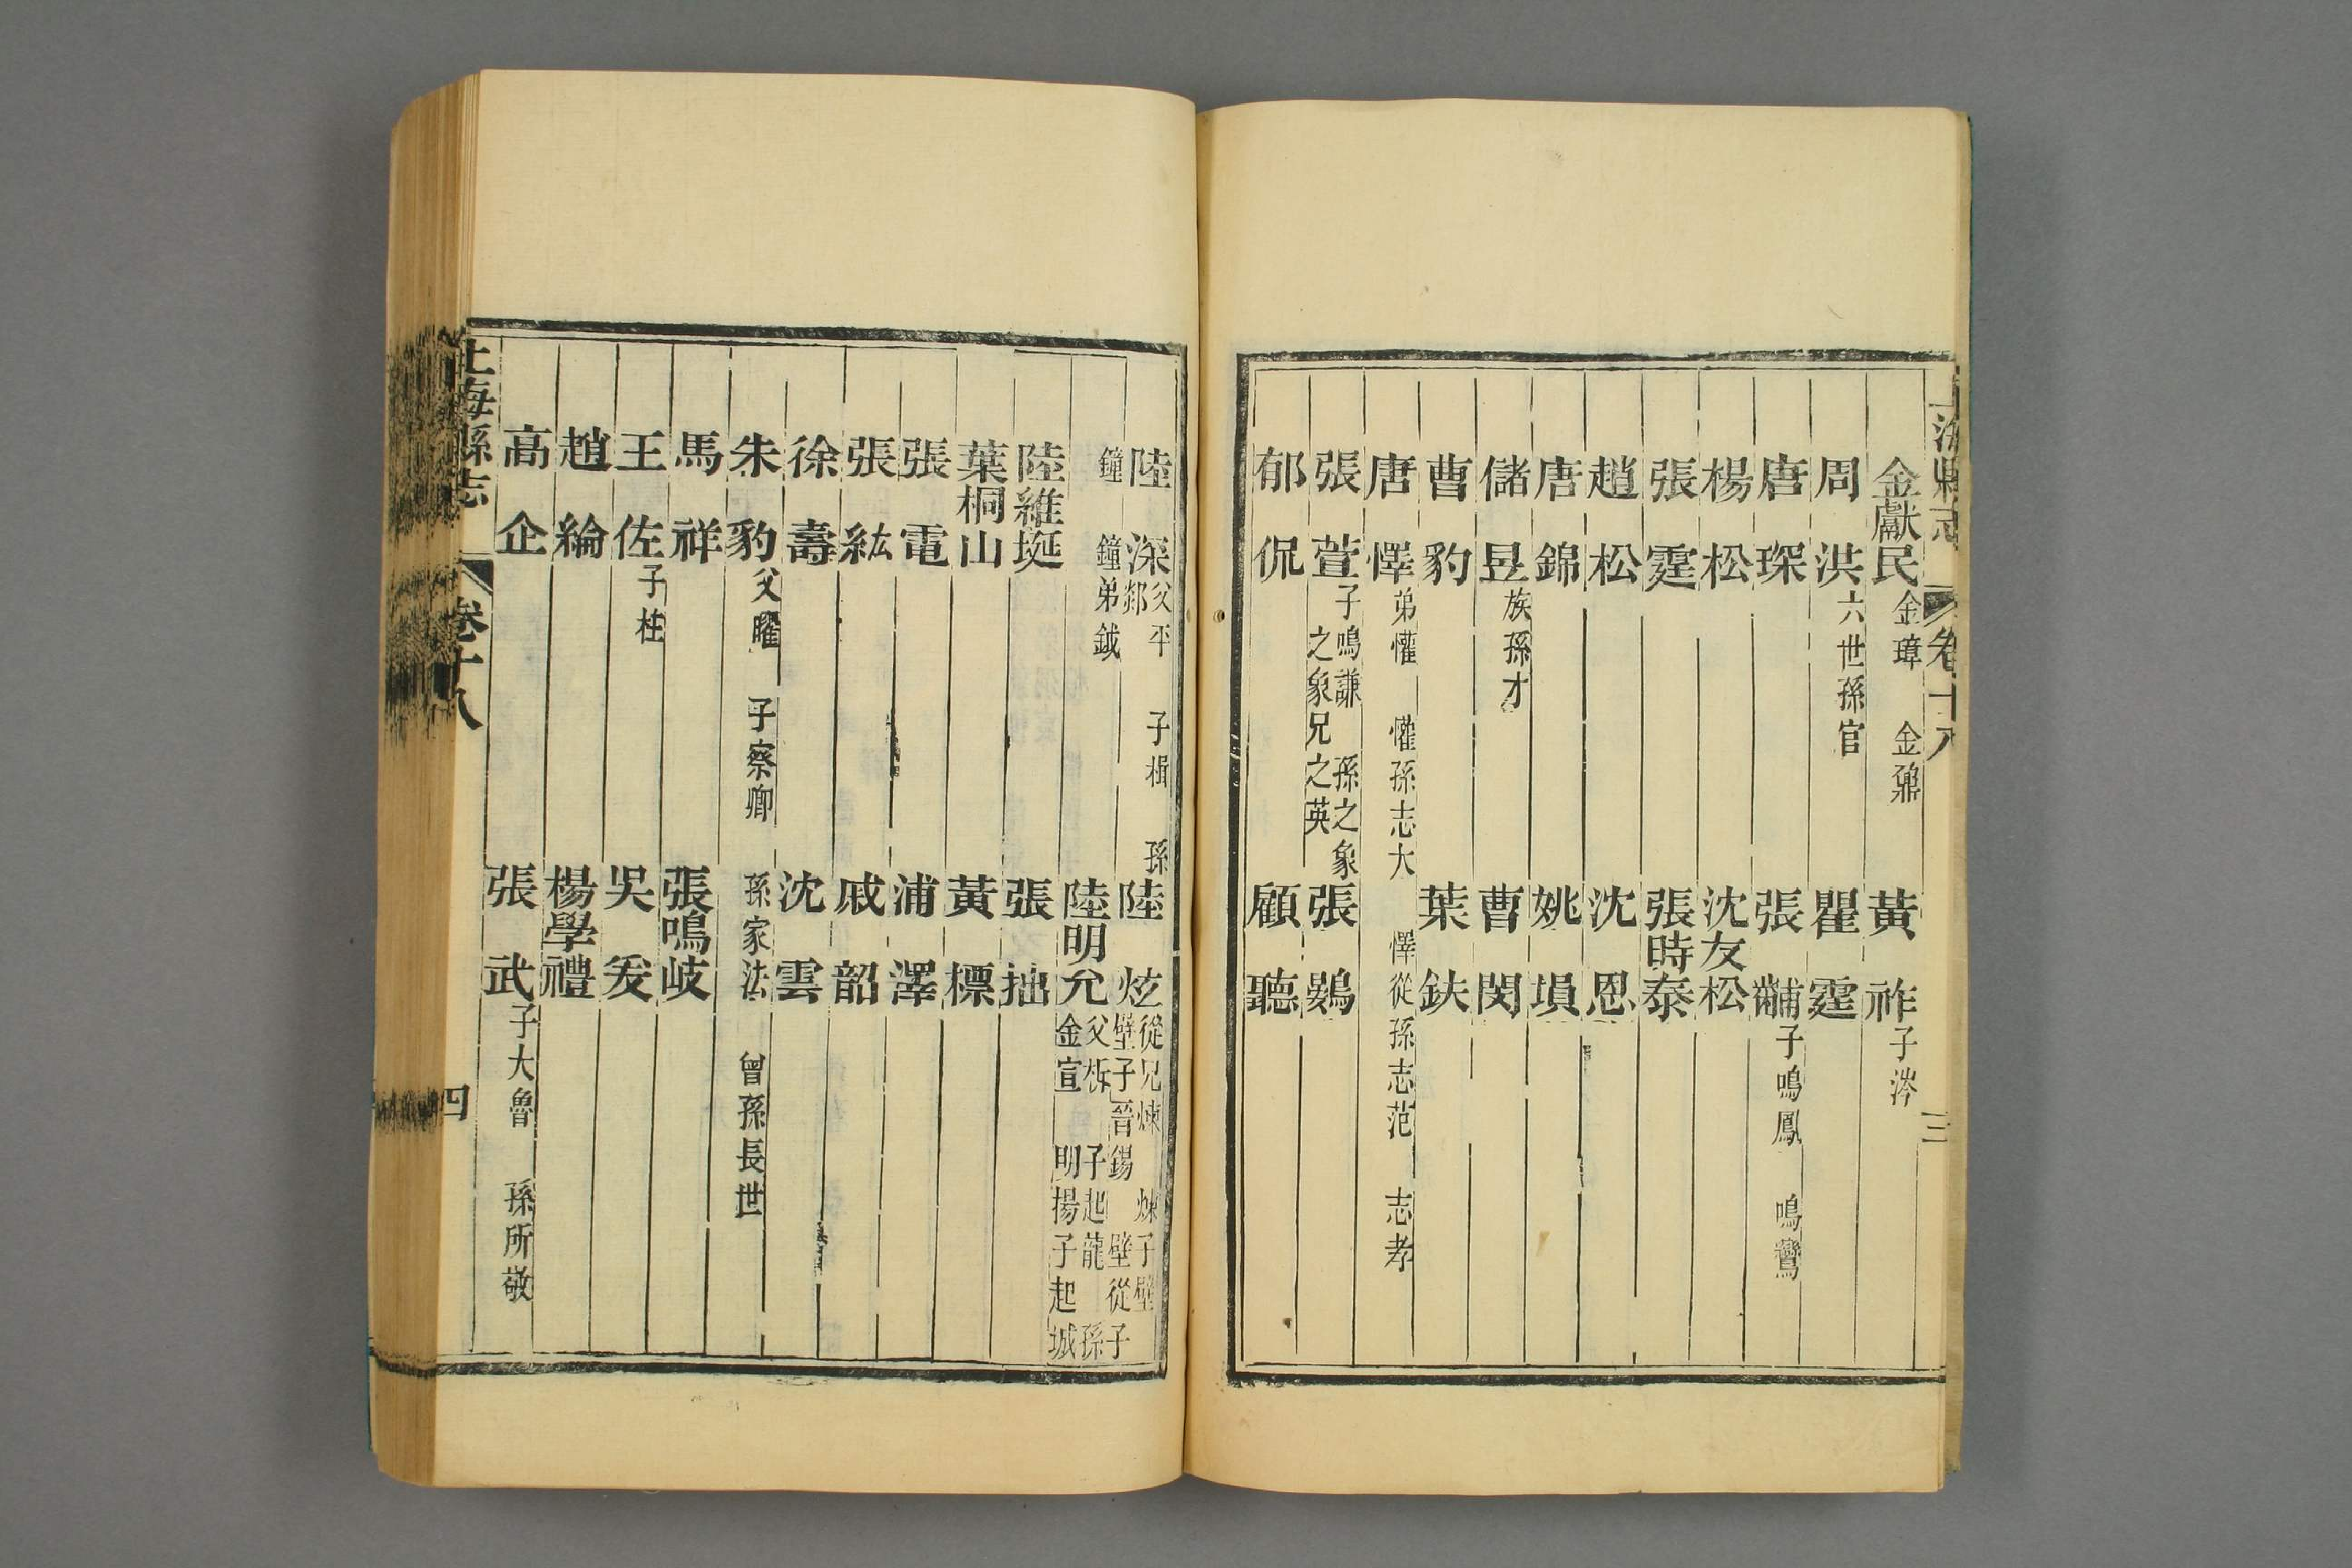 上海縣志 卷十八 三
金獻民 金璋 金鼐 黃祚 子涔
周洪 六世孫官 瞿霆
唐琛 張黼 子鳴鳳 鳴鸞
楊松 沈友松
張霆 張時泰
趙松 沈恩
唐錦 姚塤
儲昱 族孫才 曹閔
曹豹 葉鈇
唐懌 弟懽 懽孫志大 懌從孫志范 志孝
張萱 子鳴謙 孫之象 之象兄之英 張鶚
郁侃 顧聽
陸深 父平 子楫 孫郯 陸炫 從兄煉 煉子壁 壁子晉錫 壁從子
鐘 鐘弟鉞 陸明允 父㭊 子起龍 孫金宣 明揚子起城
陸維埏 張拙
葉桐山 黃標
張電 浦澤
張紘 戚韶
徐壽 沈雲
朱豹 父曜 子察卿 孫家法 曾孫長世
馬祥 張鳴岐
王佐 子柱 吳爰
趙綸 楊學禮
高企 張武 子大魯 孫所敬
上海縣志 卷十八 四